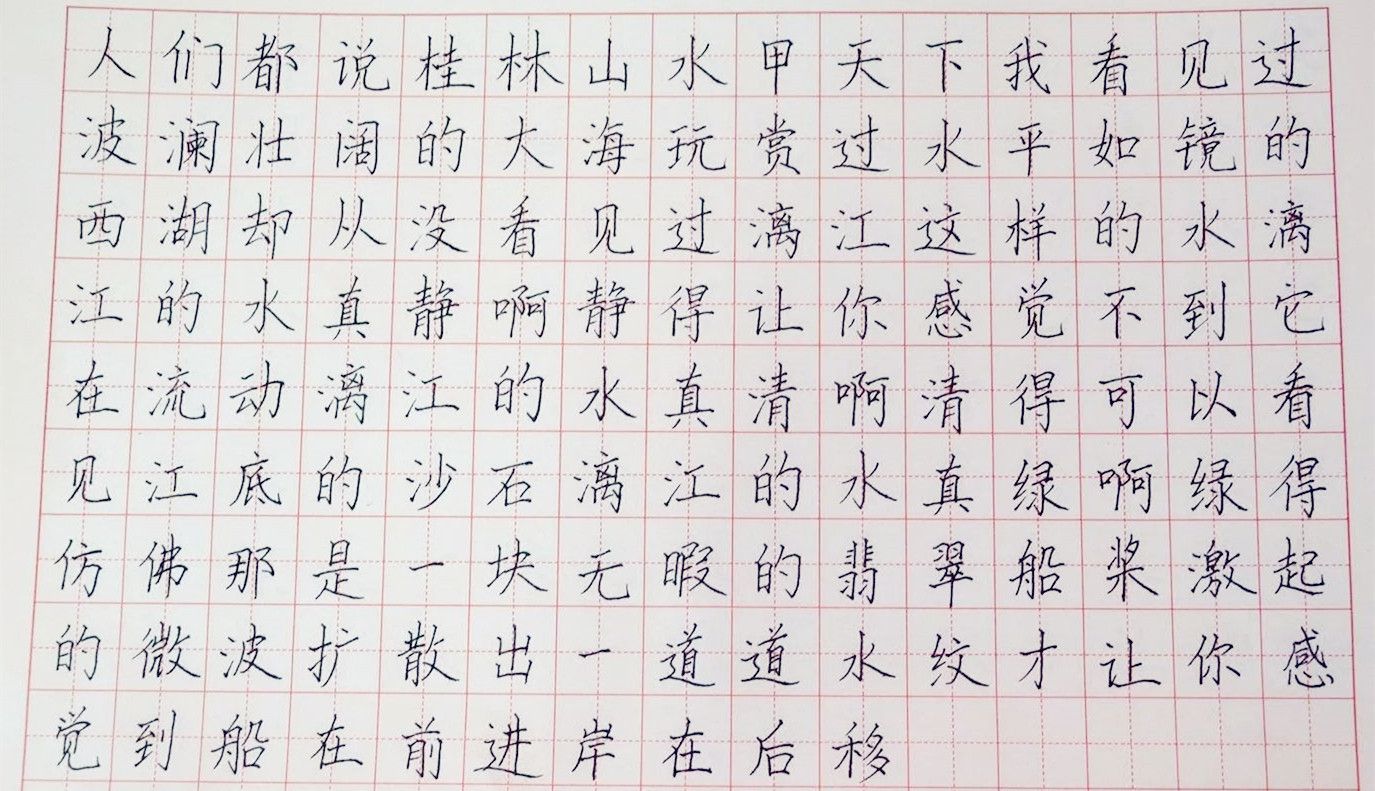 人们都说桂林山水甲天下我看见过
波澜壮阔的大海玩赏过水平如镜的
西湖却从没看见过漓江这样的水漓
江的水真静啊静得让你感觉不到它
在流动漓江的水真清啊清得可以看
见江底的沙石漓江的水真绿啊绿得
仿佛那是一块无暇的翡翠船桨激起
的微波扩散出一道道水纹才让你感
觉到船在前进岸在后移